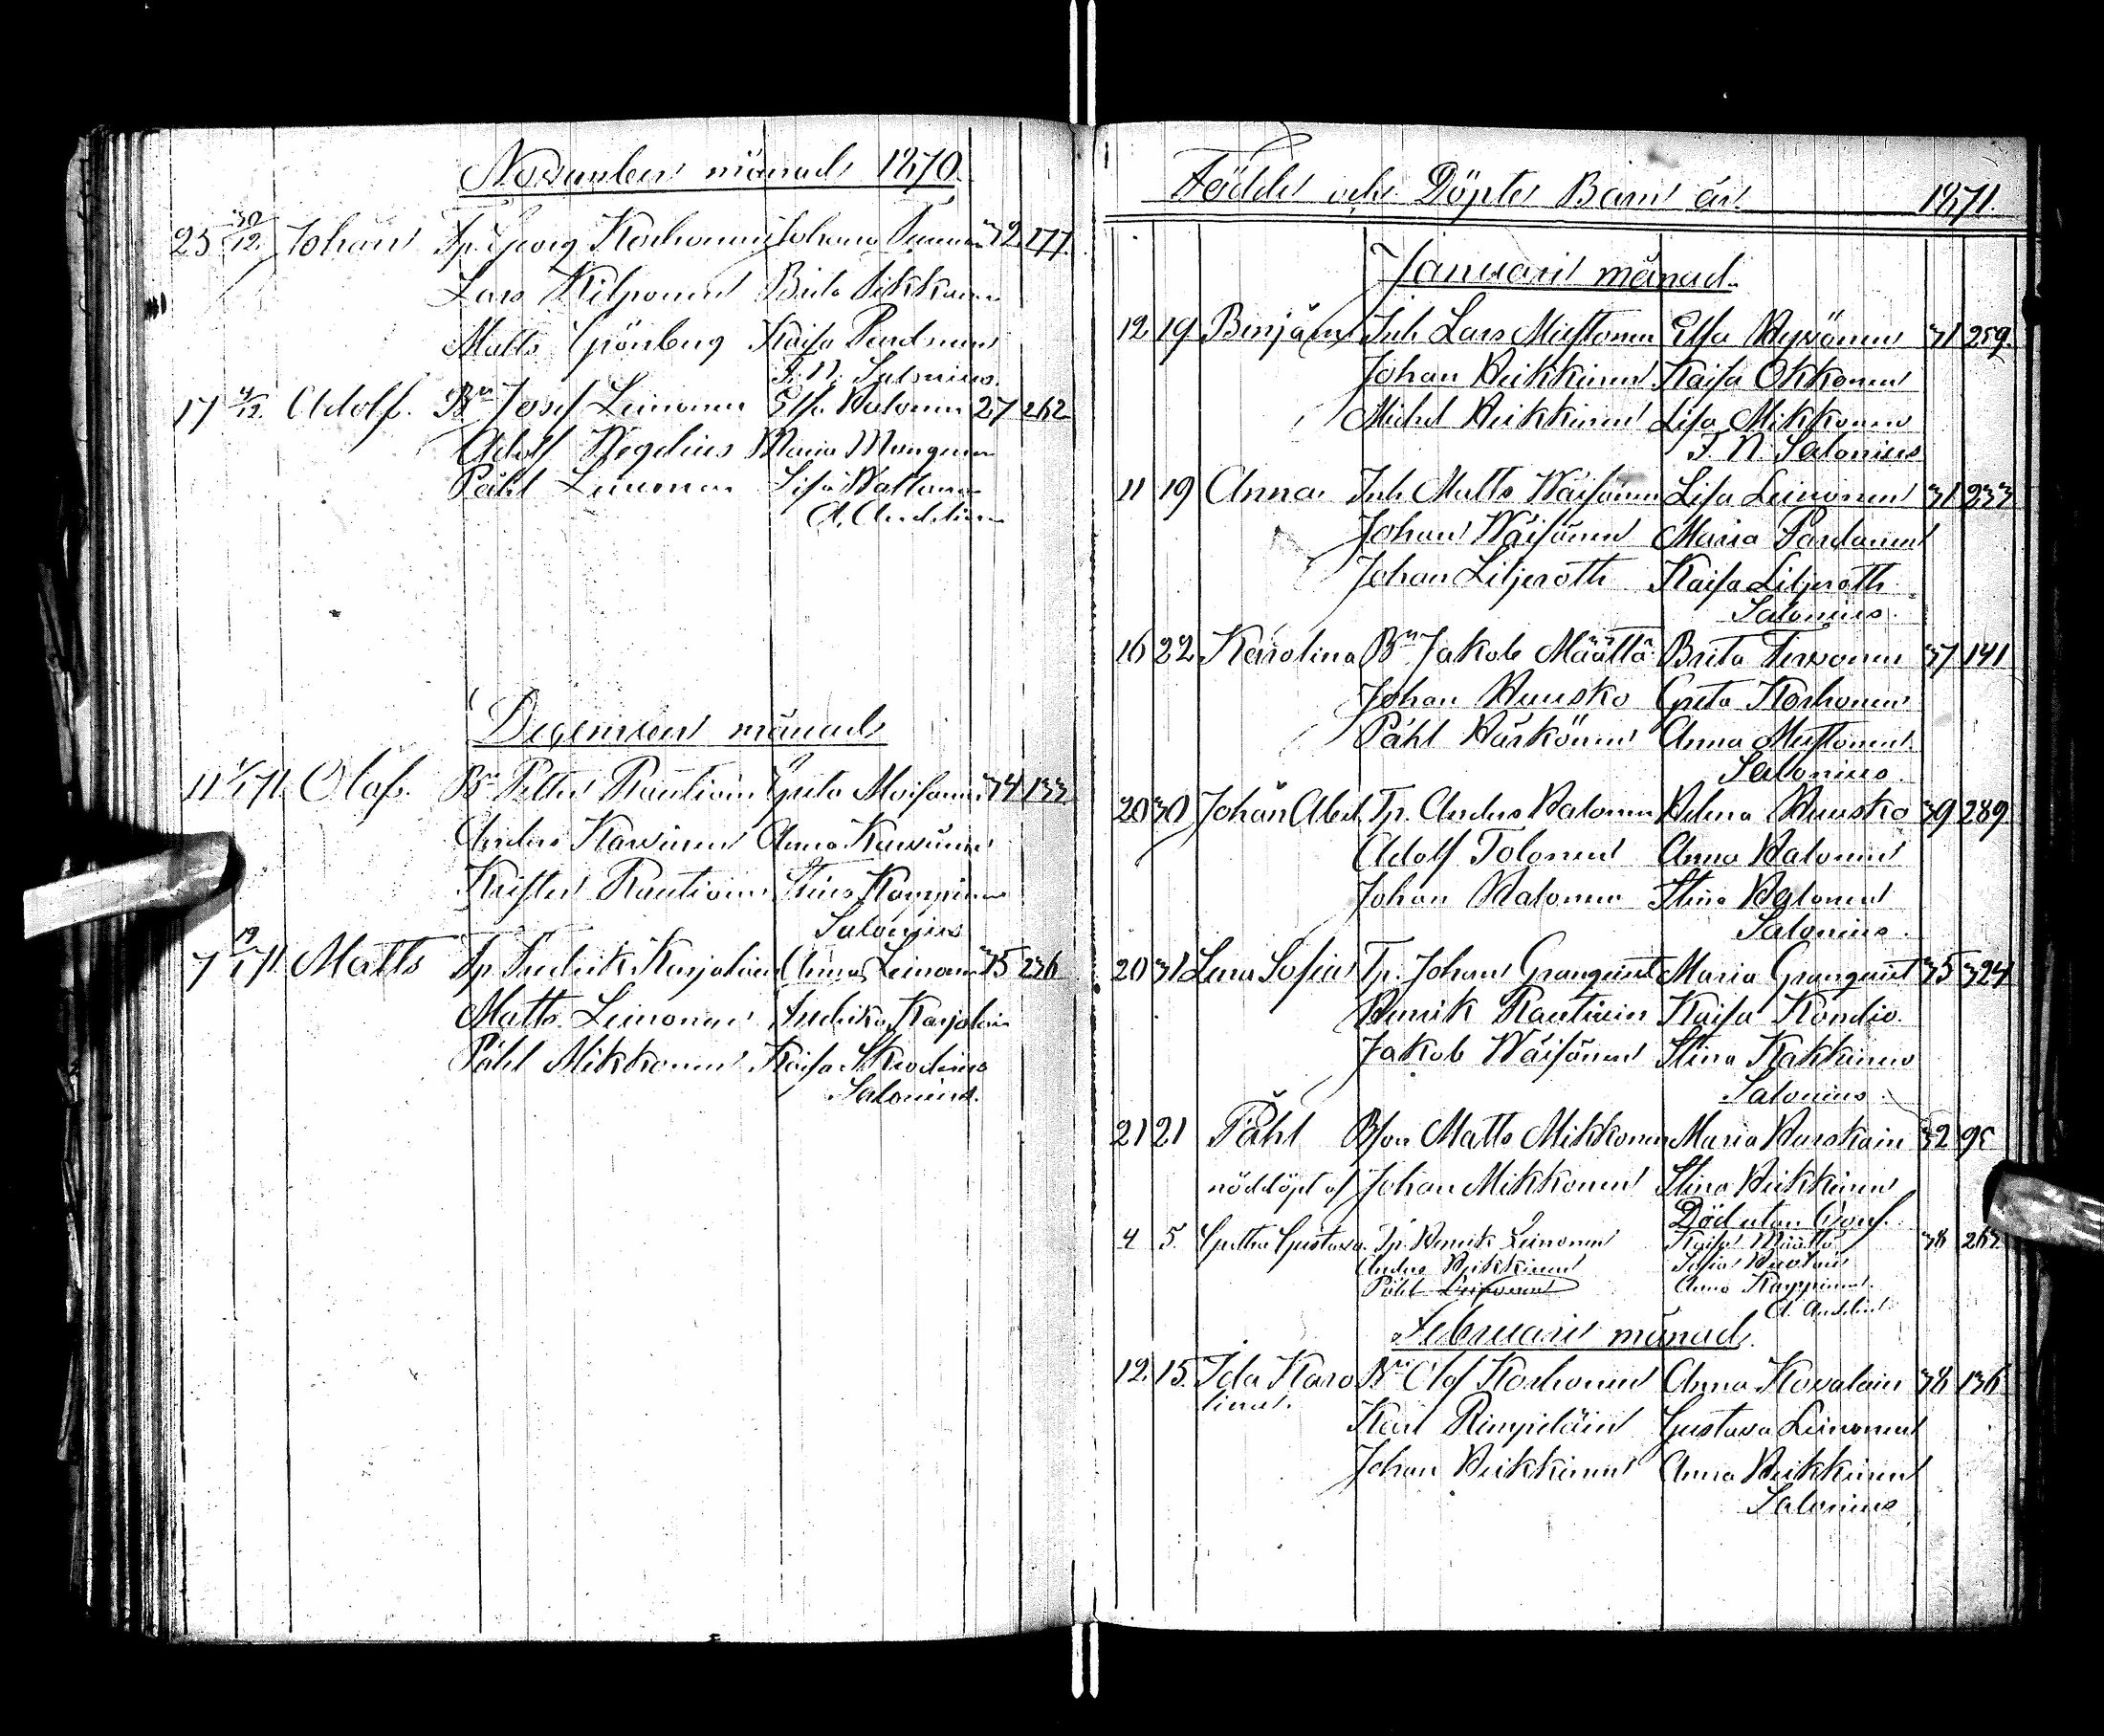 November månad 1870.
25 30/12. Johan Tp. Georg Korhonen Johana 32 177.
Lars Kilponen Brita Pikkarn
Matts Grönberg Kaisa
F. N. Salonius.
17 4/12 Adolf. Bn Josef Leinonen Elsa Halonen 27 262
Adolf Wegelius Maria Mungen
Påhl Leinonen Lisa Waltanen
A. Andelin
December månad
11 1/1 71. Olof. Bn Petter Rautiain Greta Moisanen 34 133
Anders Karvinen Anna Karvinen
Krister Rautiain Stina Kamppinen
Salonius
7 19/1 71. Matts Tp. Fredrik Karjalain Anna Leinonen 35 236
Matts Leinonen Fredrika Karjalain
Påhl Mikkonen Kaisa
Salonius.
Födde och Döpte Barn år 1871.
Januari månad.
12 19 Binjam Inh Lars Mustonen Elsa Hyvönen 31 259.
Johan Heikkinen Kaisa Okkonen
Michel Heikkinen Lisa Mikkonen
F. N. Salonius
11 19 Anna Inh Matts Wäisänen Lisa Leinonen 31 233
Johan Wäisänen Maria Pardanen
Johan Liljeroth Kaisa Liljeroth
Salonius.
16 22 Karolina Bn Jakob Määttä Brita Tervonen 37 141
Johan Huusko Greta Korhonen
Påhl Härkönen Anna Mustonen
Salonius.
20 30 Johan Abel Tp. Anders Halonen Helena Huusko 39 289.
Adolf Tolonen Anna Halonen
Johan Halonen Stina Halonen
Salonius.
20 31 Lena Sofia Tp. Johan Granquist Maria Granquist 35 324
Henrik Rautiain Kaisa
Jakob Wäisänen Stina Kakkinen
Salonius.
21 21 Påhl Bson Matts Mikkonen Maria Hurskain 32
nöddöpt af Johan Mikkonen Stina Heikkinen
Död utan
4 5. Gretha Gustava. Tp. Henrik Leinonen Kaisa Määttä 38
Anders Heikkinen Sofia
Påhl Leinonen Anna Kamppinen.
A. Andelin
Februari månad.
12. 15. Ida Karo Bn Olof Korhonen Anna Kovalain 38 136
lina.
Karl Rimpiläin Gustava Leinonen
Johan Heikkinen Anna Heikkinen
Salonius